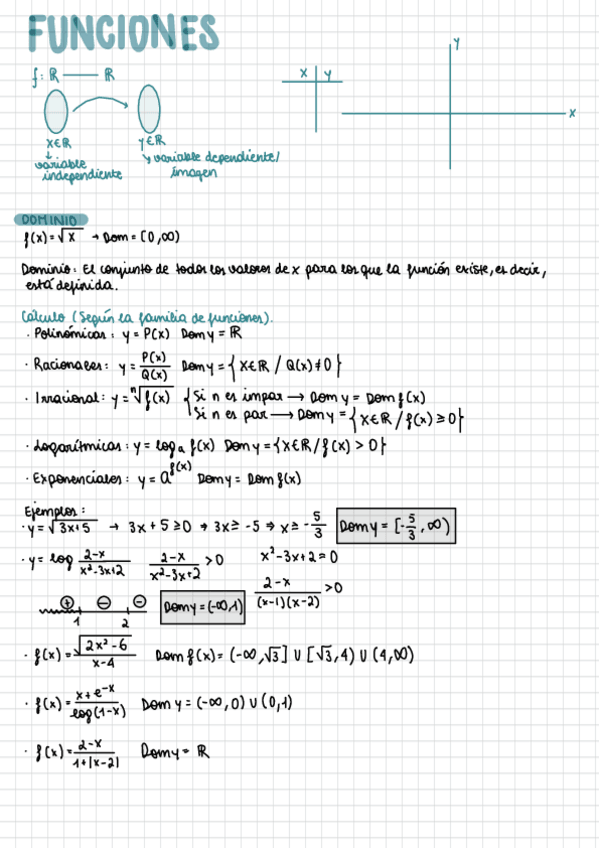 FUNCIONES
f: ℝ —— ℝ
x y
y
x
x∈ℝ
y∈ℝ
↓
variable
independiente
↘ variable dependiente/
imagen
DOMINIO
f(x)=√x → Dom = [0,∞)
Dominio: El conjunto de todos los valores de x para los que la función existe, es decir,
está definida.
Cálculo (Según la familia de funciones).
· Polinómicas: y = P(x) Dom y = ℝ
· Racionales: y = P(x)/Q(x) Dom y = {x∈ℝ / Q(x)≠0}
· Irracional: y = ⁿ√f(x) { Si n es impar → Dom y = Dom f(x)
Si n es par → Dom y = {x∈ℝ / f(x) ≥ 0}
· Logarítmicas: y = logₐ f(x) Dom y = {x∈ℝ / f(x) > 0}
· Exponenciales: y = a^f(x) Dom y = Dom f(x)
Ejemplos:
· y = √3x+5 → 3x+5 ≥ 0 → 3x ≥ -5 ⇒ x ≥ -5/3 Dom y = [-5/3, ∞)
· y = log 2-x/x²-3x+2 2-x/x²-3x+2 > 0 x²-3x+2=0
2-x/(x-1)(x-2) > 0
⊕ ⊖ ⊖
1 2
Dom y = (-∞,1)
· f(x) = √2x²-6/x-4 Dom f(x) = (-∞,√3] ∪ [√3,4) ∪ (4,∞)
· f(x) = x+e^-x/log(1-x) Dom y = (-∞,0) ∪ (0,1)
· f(x) = 2-x/1+|x-2| Dom y = ℝ